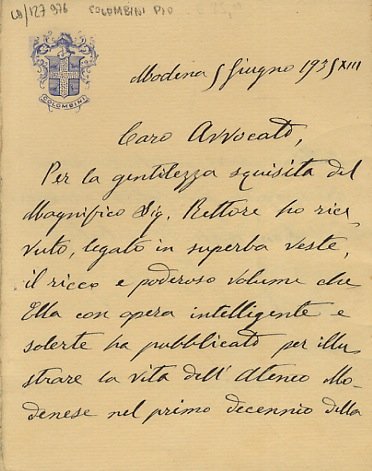 LB/127 976 COLOMBINI PIO
COLOMBINI
Modena 5 Giugno 1935 XIII
Caro Avvocato,
Per la gentilezza squisita del
Magnifico Sig. Rettore ho rice
vuto, legato in superba veste,
il ricco e poderoso volume che
Ella con opera intelligente e
solerte ha pubblicato per illu
strare la vita dell' Ateneo Mo-
denese nel primo decennio della